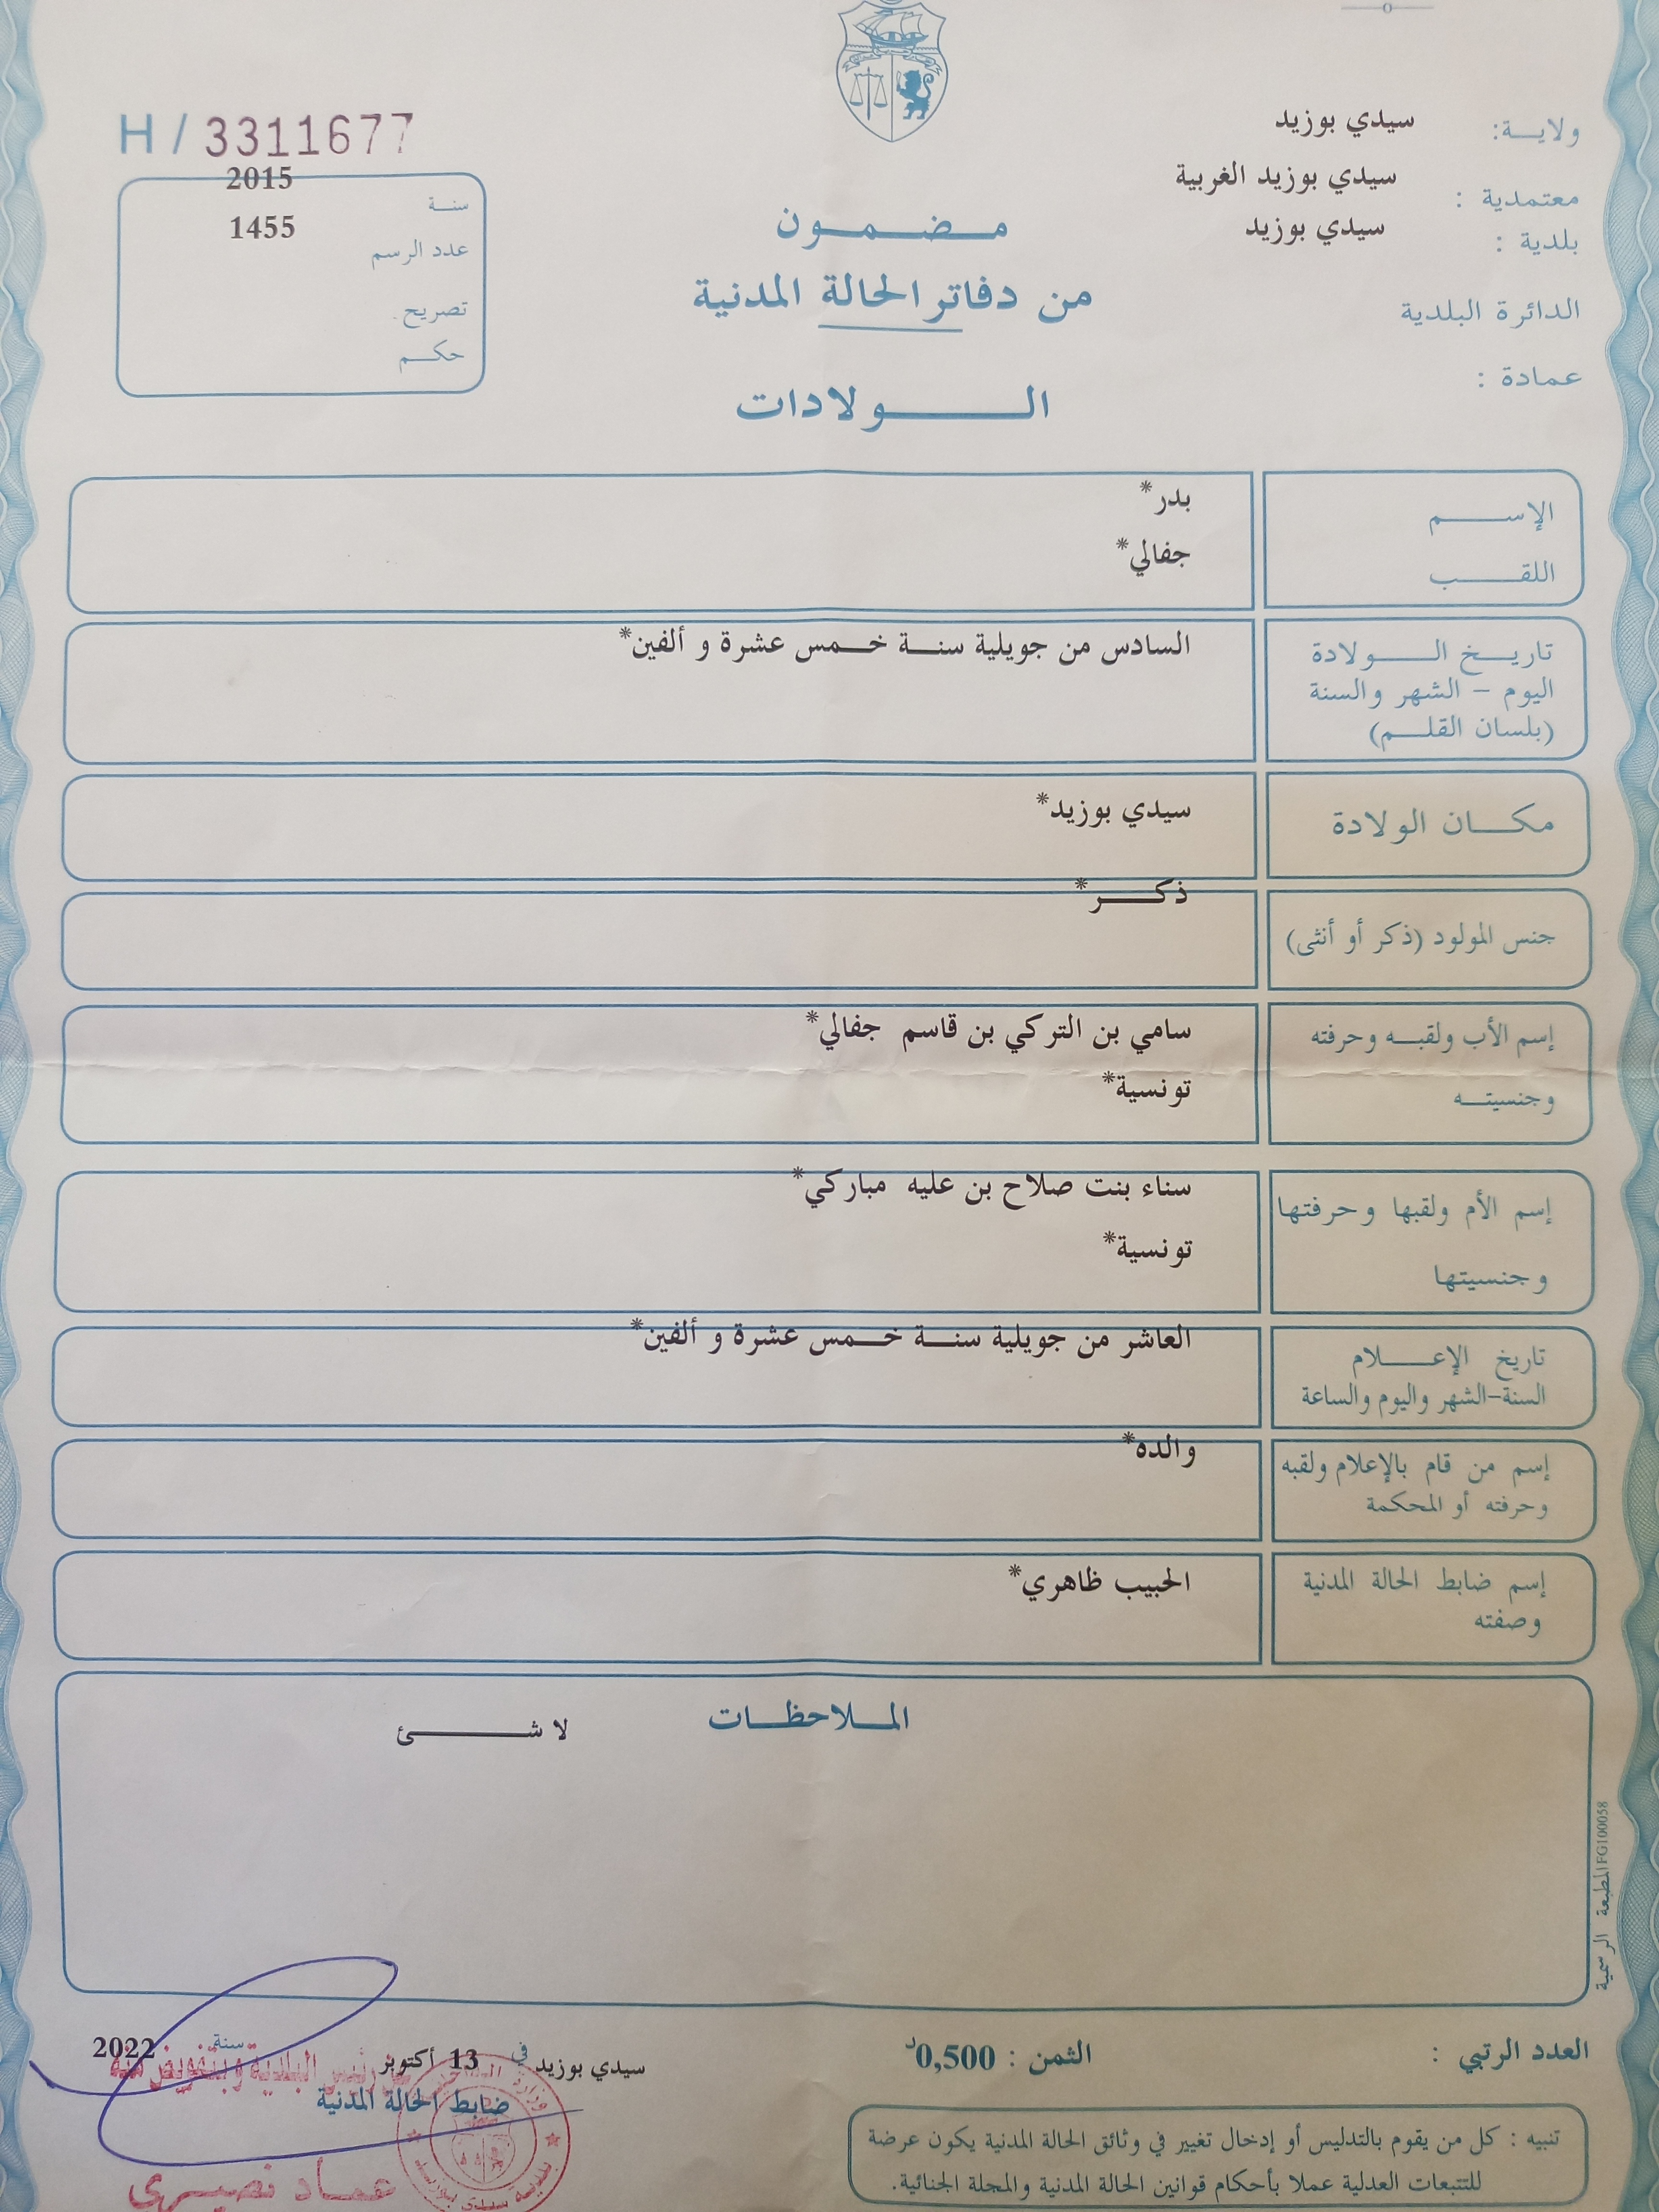 ولايـــة: سيدي بوزيد
معتمدية : سيدي بوزيد الغربية
بلدية : سيدي بوزيد
الدائرة البلدية
عمادة :
مـضـمـون
من دفاتر الحالة المدنية
الـولادات
H / 3311677
سنـة 2015
عدد الرسم 1455
تصريح.
حكـم
الإسـم بدر*
اللقـب جفالي*
تاريـخ الـولادة السادس من جويلية سنـة خـمس عشرة و ألفين*
اليوم – الشهر والسنة
(بلسان القلـم)
مكـان الولادة سيدي بوزيد*
جنس المولود (ذكر أو أنثى) ذكـر*
إسم الأب ولقبـه وحرفته سامي بن التركي بن قاسم جفالي*
وجنسيتـه تونسية*
إسم الأم ولقبها وحرفتها سناء بنت صلاح بن عليه مباركي*
وجنسيتها تونسية*
تاريخ الإعـلام العاشر من جويلية سنـة خـمس عشرة و ألفين*
السنة-الشهر واليوم والساعة
إسم من قام بالإعلام ولقبه والده*
وحرفته أو المحكمة
إسم ضابط الحالة المدنية الحبيب ظاهري*
وصفته
المـلاحظـات
لا شـئ
المطبعة الرسمية FG100058
العدد الرتبي :
الثمن : 0,500د
سيدي بوزيد في 13 أكتوبر سنة 2022
رئيس البلدية وبتفويض منه
ضابط الحالة المدنية
عمـاد نصيـري
وزارة الداخلية
بلدية سيدي بوزيد
تنبيه : كل من يقوم بالتدليس أو إدخال تغيير في وثائق الحالة المدنية يكون عرضة
للتتبعات العدلية عملا بأحكام قوانين الحالة المدنية والمجلة الجنائية.